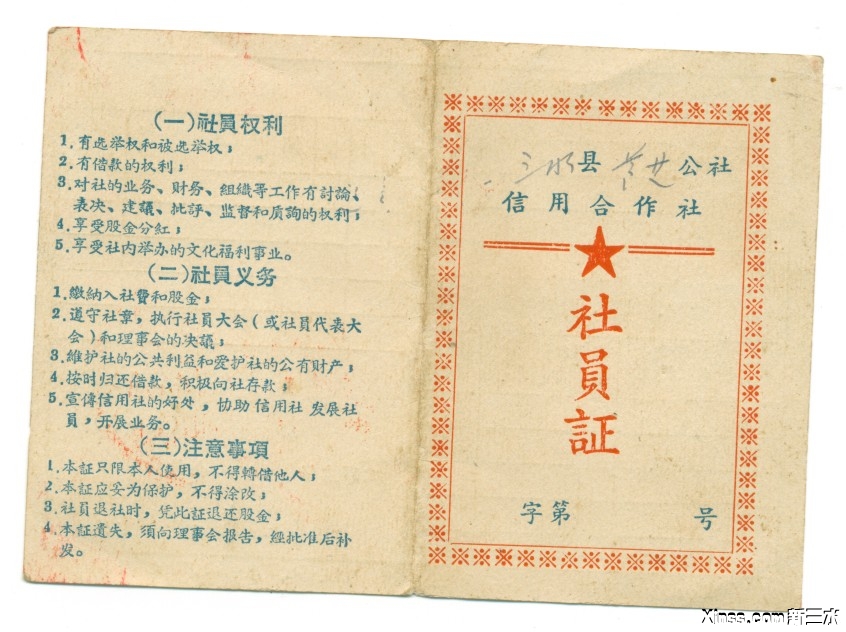 (一)社員权利
1.有选举权和被选举权；
2.有借款的权利；
3.对社的业务、财务、組織等工作有討論、
表决、建議、批評、监督和质詢的权利；
4.享受股金分紅；
5.享受社内举办的文化福利事业。
(二)社員义务
1.缴納入社費和股金；
2.遵守社章，执行社員大会(或社員代表大
会)和理事会的决議；
3.維护社的公共利益和爱护社的公有财产；
4.按时归还借款，积极向社存款；
5.宣傳信用社的好处，协助信用社发展社
員，开展业务。
(三)注意事項
1.本証只限本人使用，不得轉借他人；
2.本証应妥为保护，不得涂改；
3.社員退社时，凭此証退还股金；
4.本証遺失，須向理事会报告，經批准后补
发。
三水县 公社
信用合作社
社員証
字第 号
Xinss.com新三水